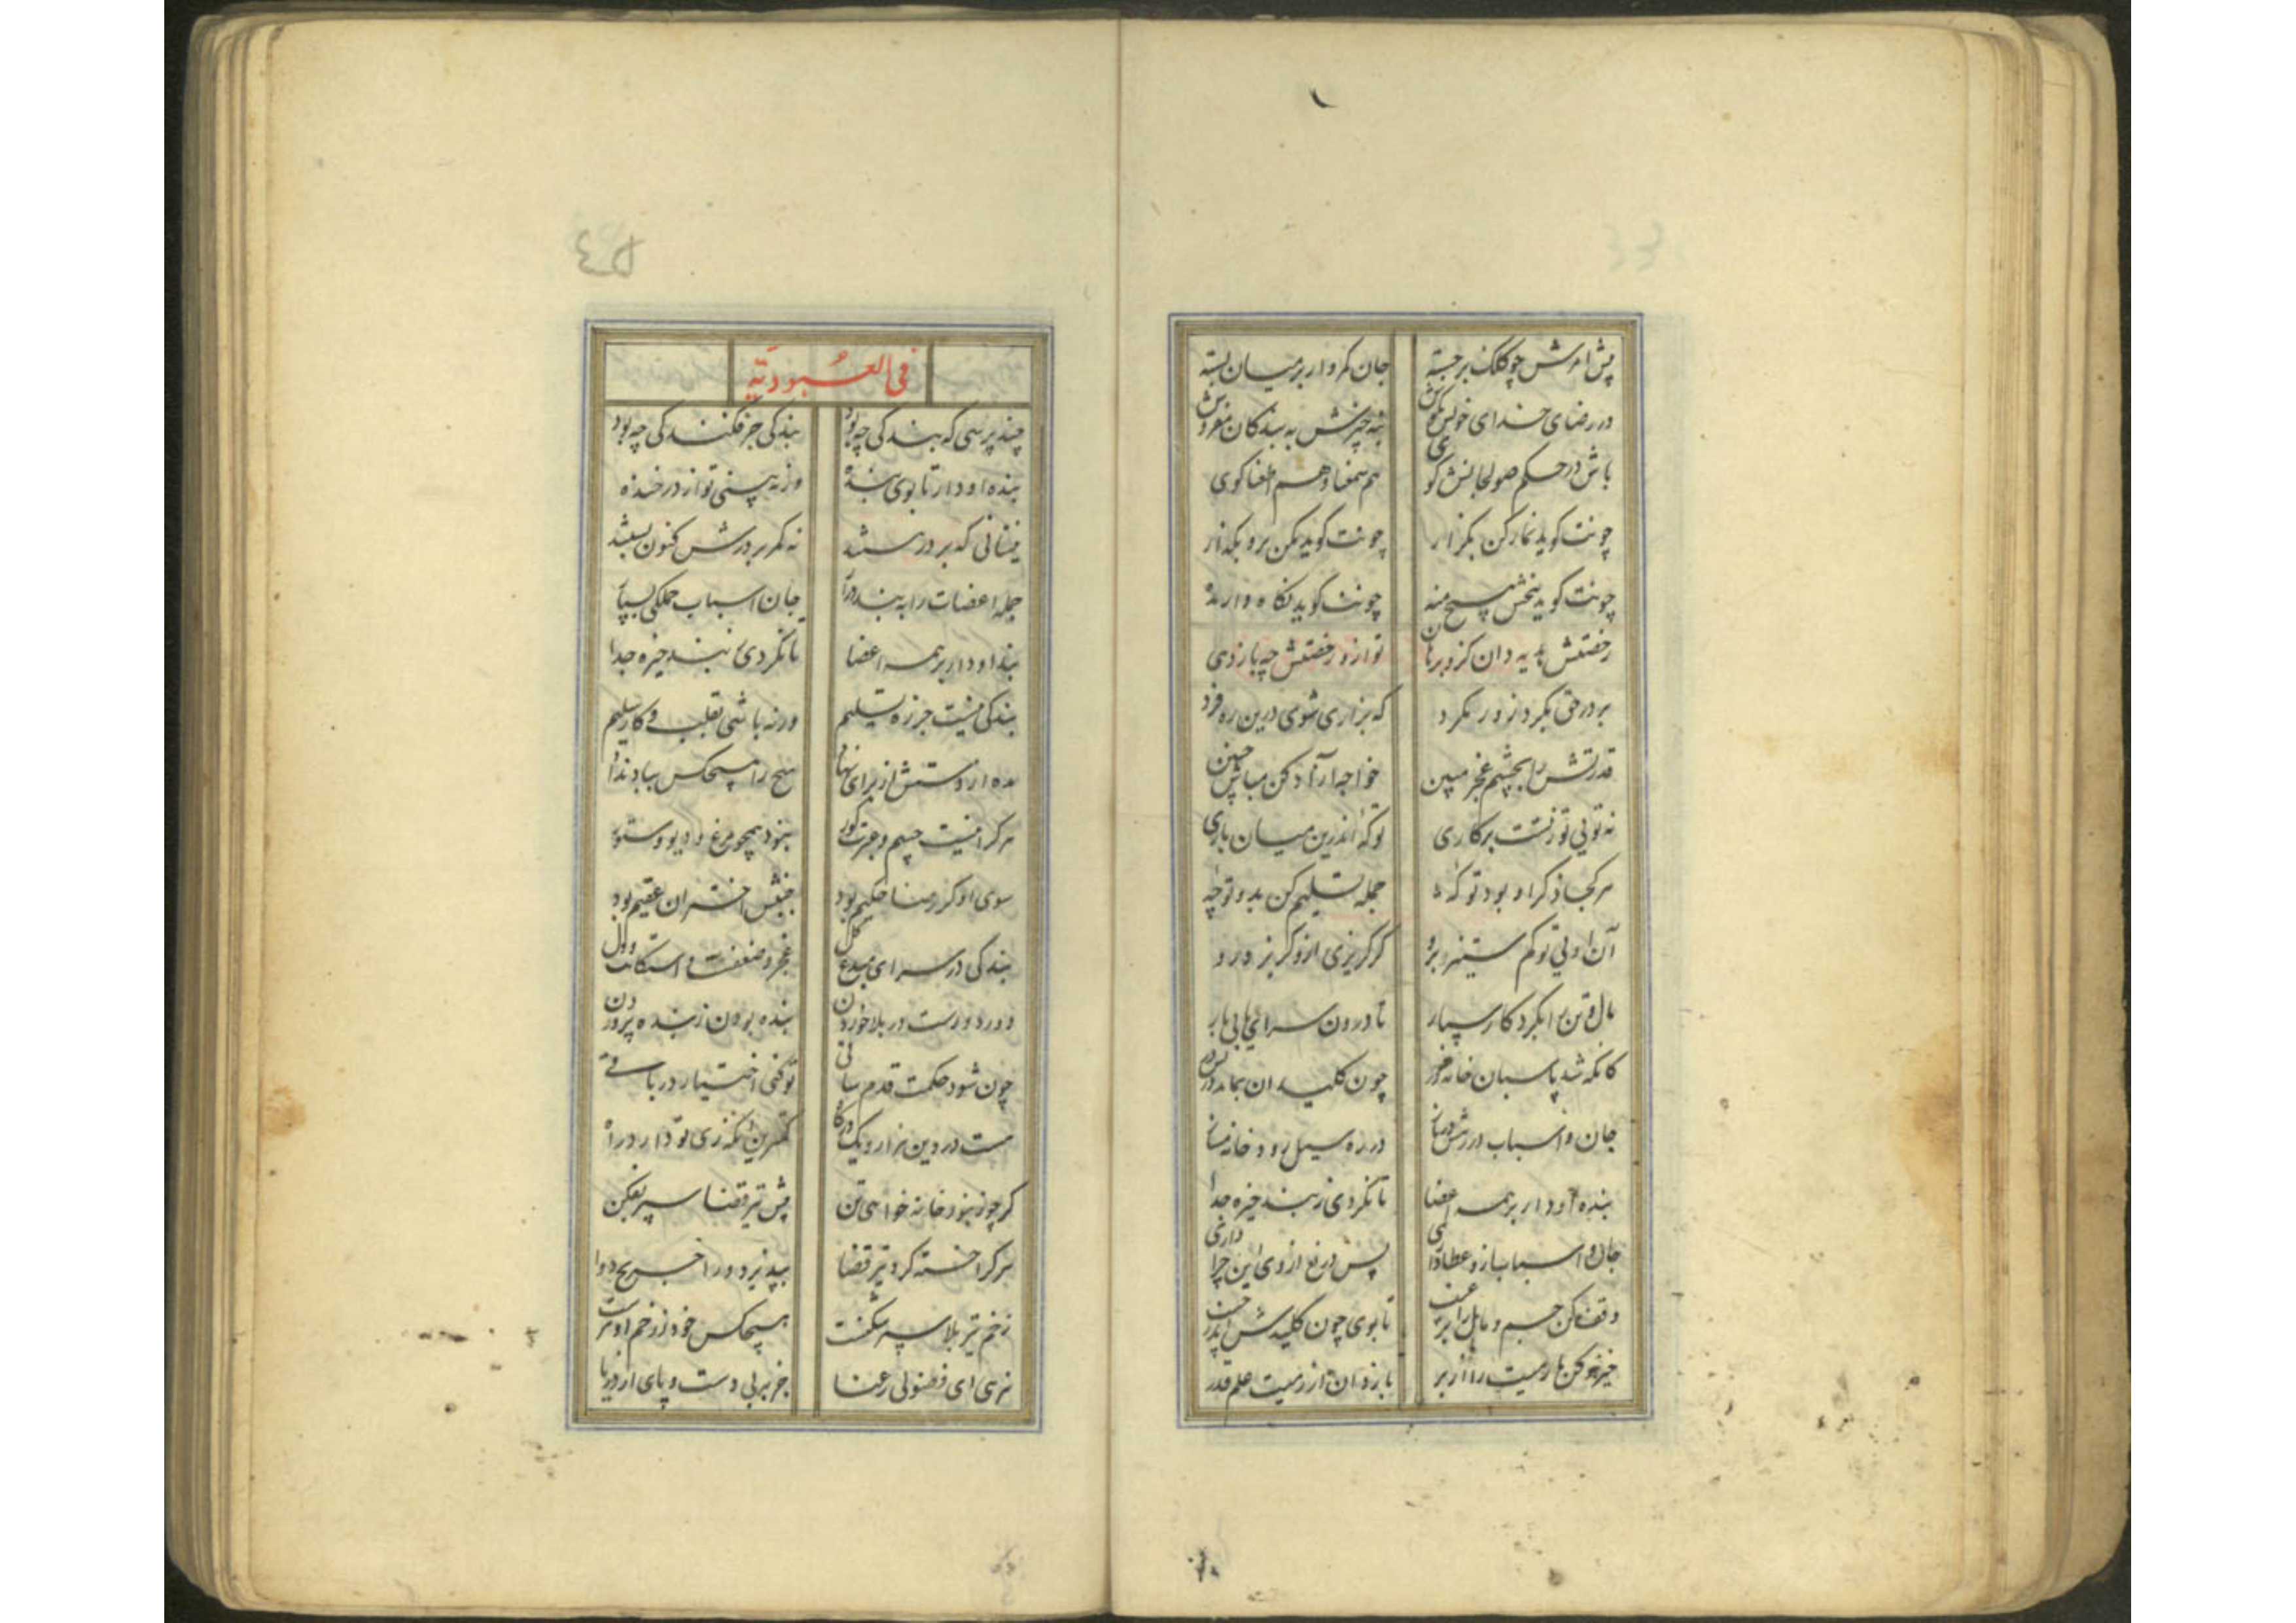 پیش امرش چو کلک برجسته جان کمروار بر میان بسته
در رضای خدای خویش بکوش نه خبرش به بندکان مفروش
باش در حکم صولجانش کوی هم سمعنا و هم اطعنا کوی
چونت کوید نماز کن بکزار چونت کوید مکن برو بکذار
چونت کوید ببخش هیچ منه چونت کوید نکاه دار مده
رخصتش هدیه دان کزو بر تو ازو رخصتش چه باز دهی
بر در حق بکرد زور مکرد که بزاری شوی درین ره فرد
قدرتش را بچشم عجز مبین خواجه آزاد کن مباش چنین
نه تویی تو زتست برکاری تو که اندرین میان باری
هر کجا ذکر او بود تو که جمله تسلیم کن بدو تو چه
آن اویی تو کم ستیز برو کر کریزی ازو کریز درو
مال و تن را بکرد کار سپار تا درون سرای یابی بار
کانکه شد پاسبان خانه خور چون کلیدان بماند بر در
جان و اسباب در رهش در ره سیل رود خانه
بند او دار بر همه اعضا تا نکردی ز بند خیره جدا
جان و اسباب ازو عطا داری پس دریغ ازوی این چرا داری
وقف کن جسم و مال را بر تا بوی چون کلیدش
خیز و کن بار باز دان از علم قدر
فی العبودیّة
چند پرسی که بندکی چه بود بندکی جز فکندکی چه بود
بند او دار تا بوی بنده ورنه بینی تو از در خنده
نیستانی که بر درش هستند نه کمر بر درش کنون بستند
جمله اعضات را به بند درآر جان و اسباب جملکی بسپار
بند او دار بر همه اعضا تا نکردی ز بند خیره جدا
بندکی نیست جز ره تسلیم ورنه باشی بقلب و کار سلیم
مده از دستش از برای هیچ را هیچکس بباد نداد
هر کرا نیست چشم عبرت کور بنود همچو مرغ و دیو و ستور
سوی او کز رضا حکیم بود جنبش اختران عقیم بود
بندکی در سرای مبدع کل عجز و ضعفست و استکانت و ذل
درد دورست در بلا خوردن بنده بودن ز بنده پروردن
چون شود حکمت قدم ساقی تو کنی اختیار در باقی
هست در دین هزار و یک درکاه کمترین آنکه زی تو دارد راه
کر چو زنبور خانه خواهی تن پیش تیر قضا سپر بفکن
هر کرا خسته کرد تیر قضا نپذیرد ورا جریح دوا
زخم تیر بلا سپر شکنست هیچکس خود ز زخم او نرست
نرهی ای فضولی رعنا جز به بی دست و پای از دریا